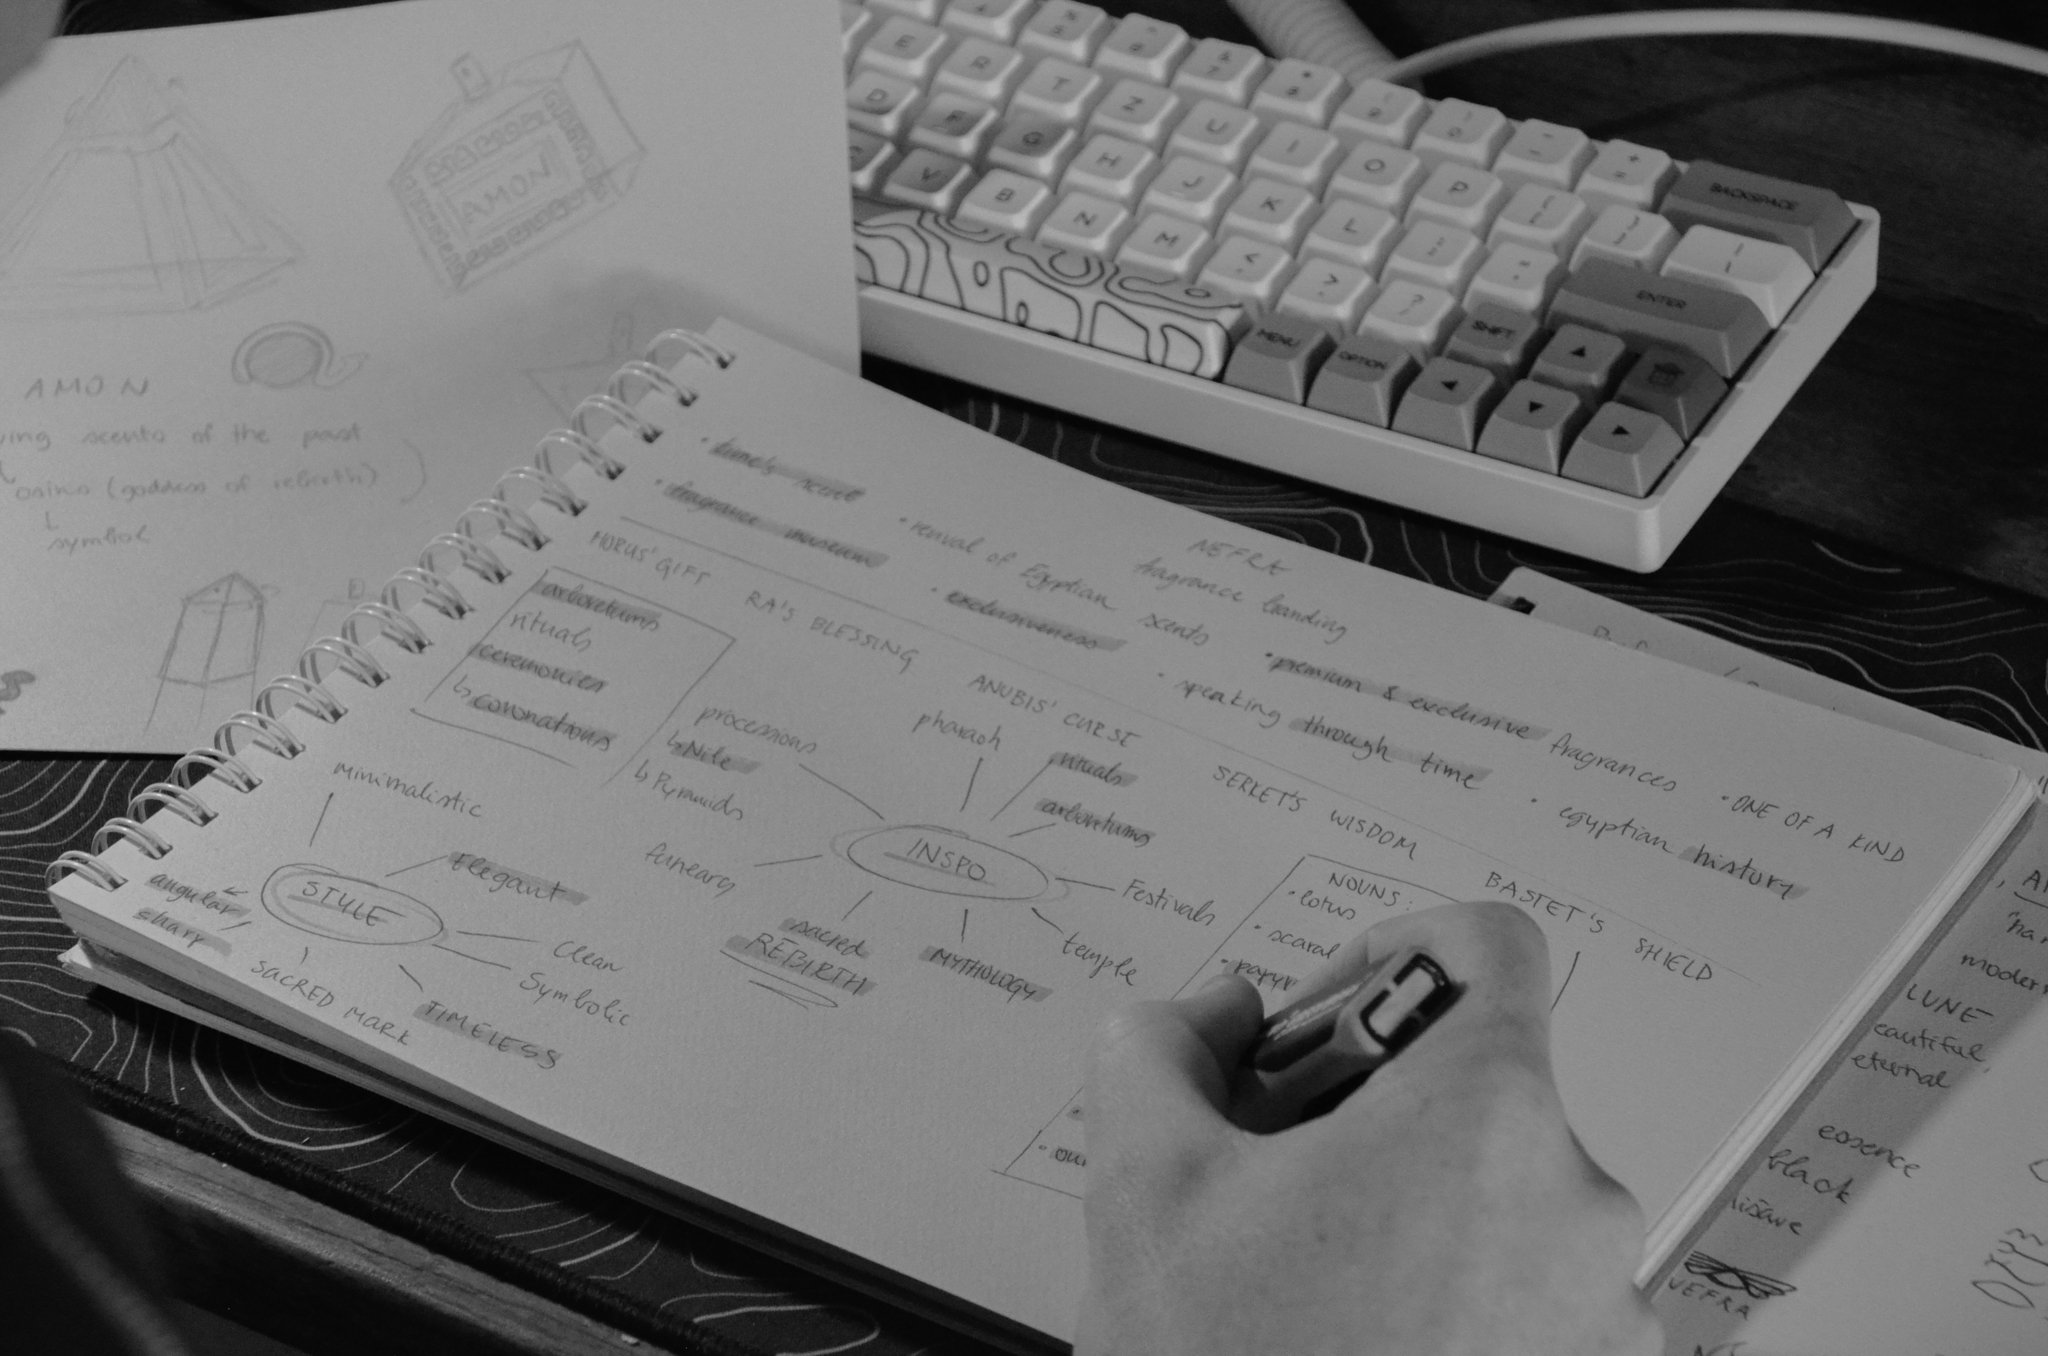 AMON
AMON
scents of the past
(goddess of rebirth)
symbol
• time's scent
• fragrance museum
NEFRA
fragrance branding
• revival of Egyptian scents
• exclusiveness
• premium & exclusive fragrances
• speaking through time
• ONE OF A KIND
• egyptian history
HORUS' GIFT
RA'S BLESSING
ANUBIS' CURSE
SERKET'S WISDOM
BASTET'S SHIELD
arboretums
rituals
ceremonies
↳ coronations
processions
↳ Nile
↳ Pyramids
pharaoh
rituals
arboretums
INSPO
funerary
Festivals
sacred
REBIRTH
MYTHOLOGY
temple
minimalistic
Elegant
STYLE
angular
sharp
Clean
Symbolic
SACRED MARK
TIMELESS
NOUNS:
• lotus
LUNE
eternal
essence
black
NEFRA
E
R
T
Z
U
I
O
P
BACKSPACE
D
F
G
H
J
K
L
ENTER
V
B
N
M
SHIFT
MENU
OPTION